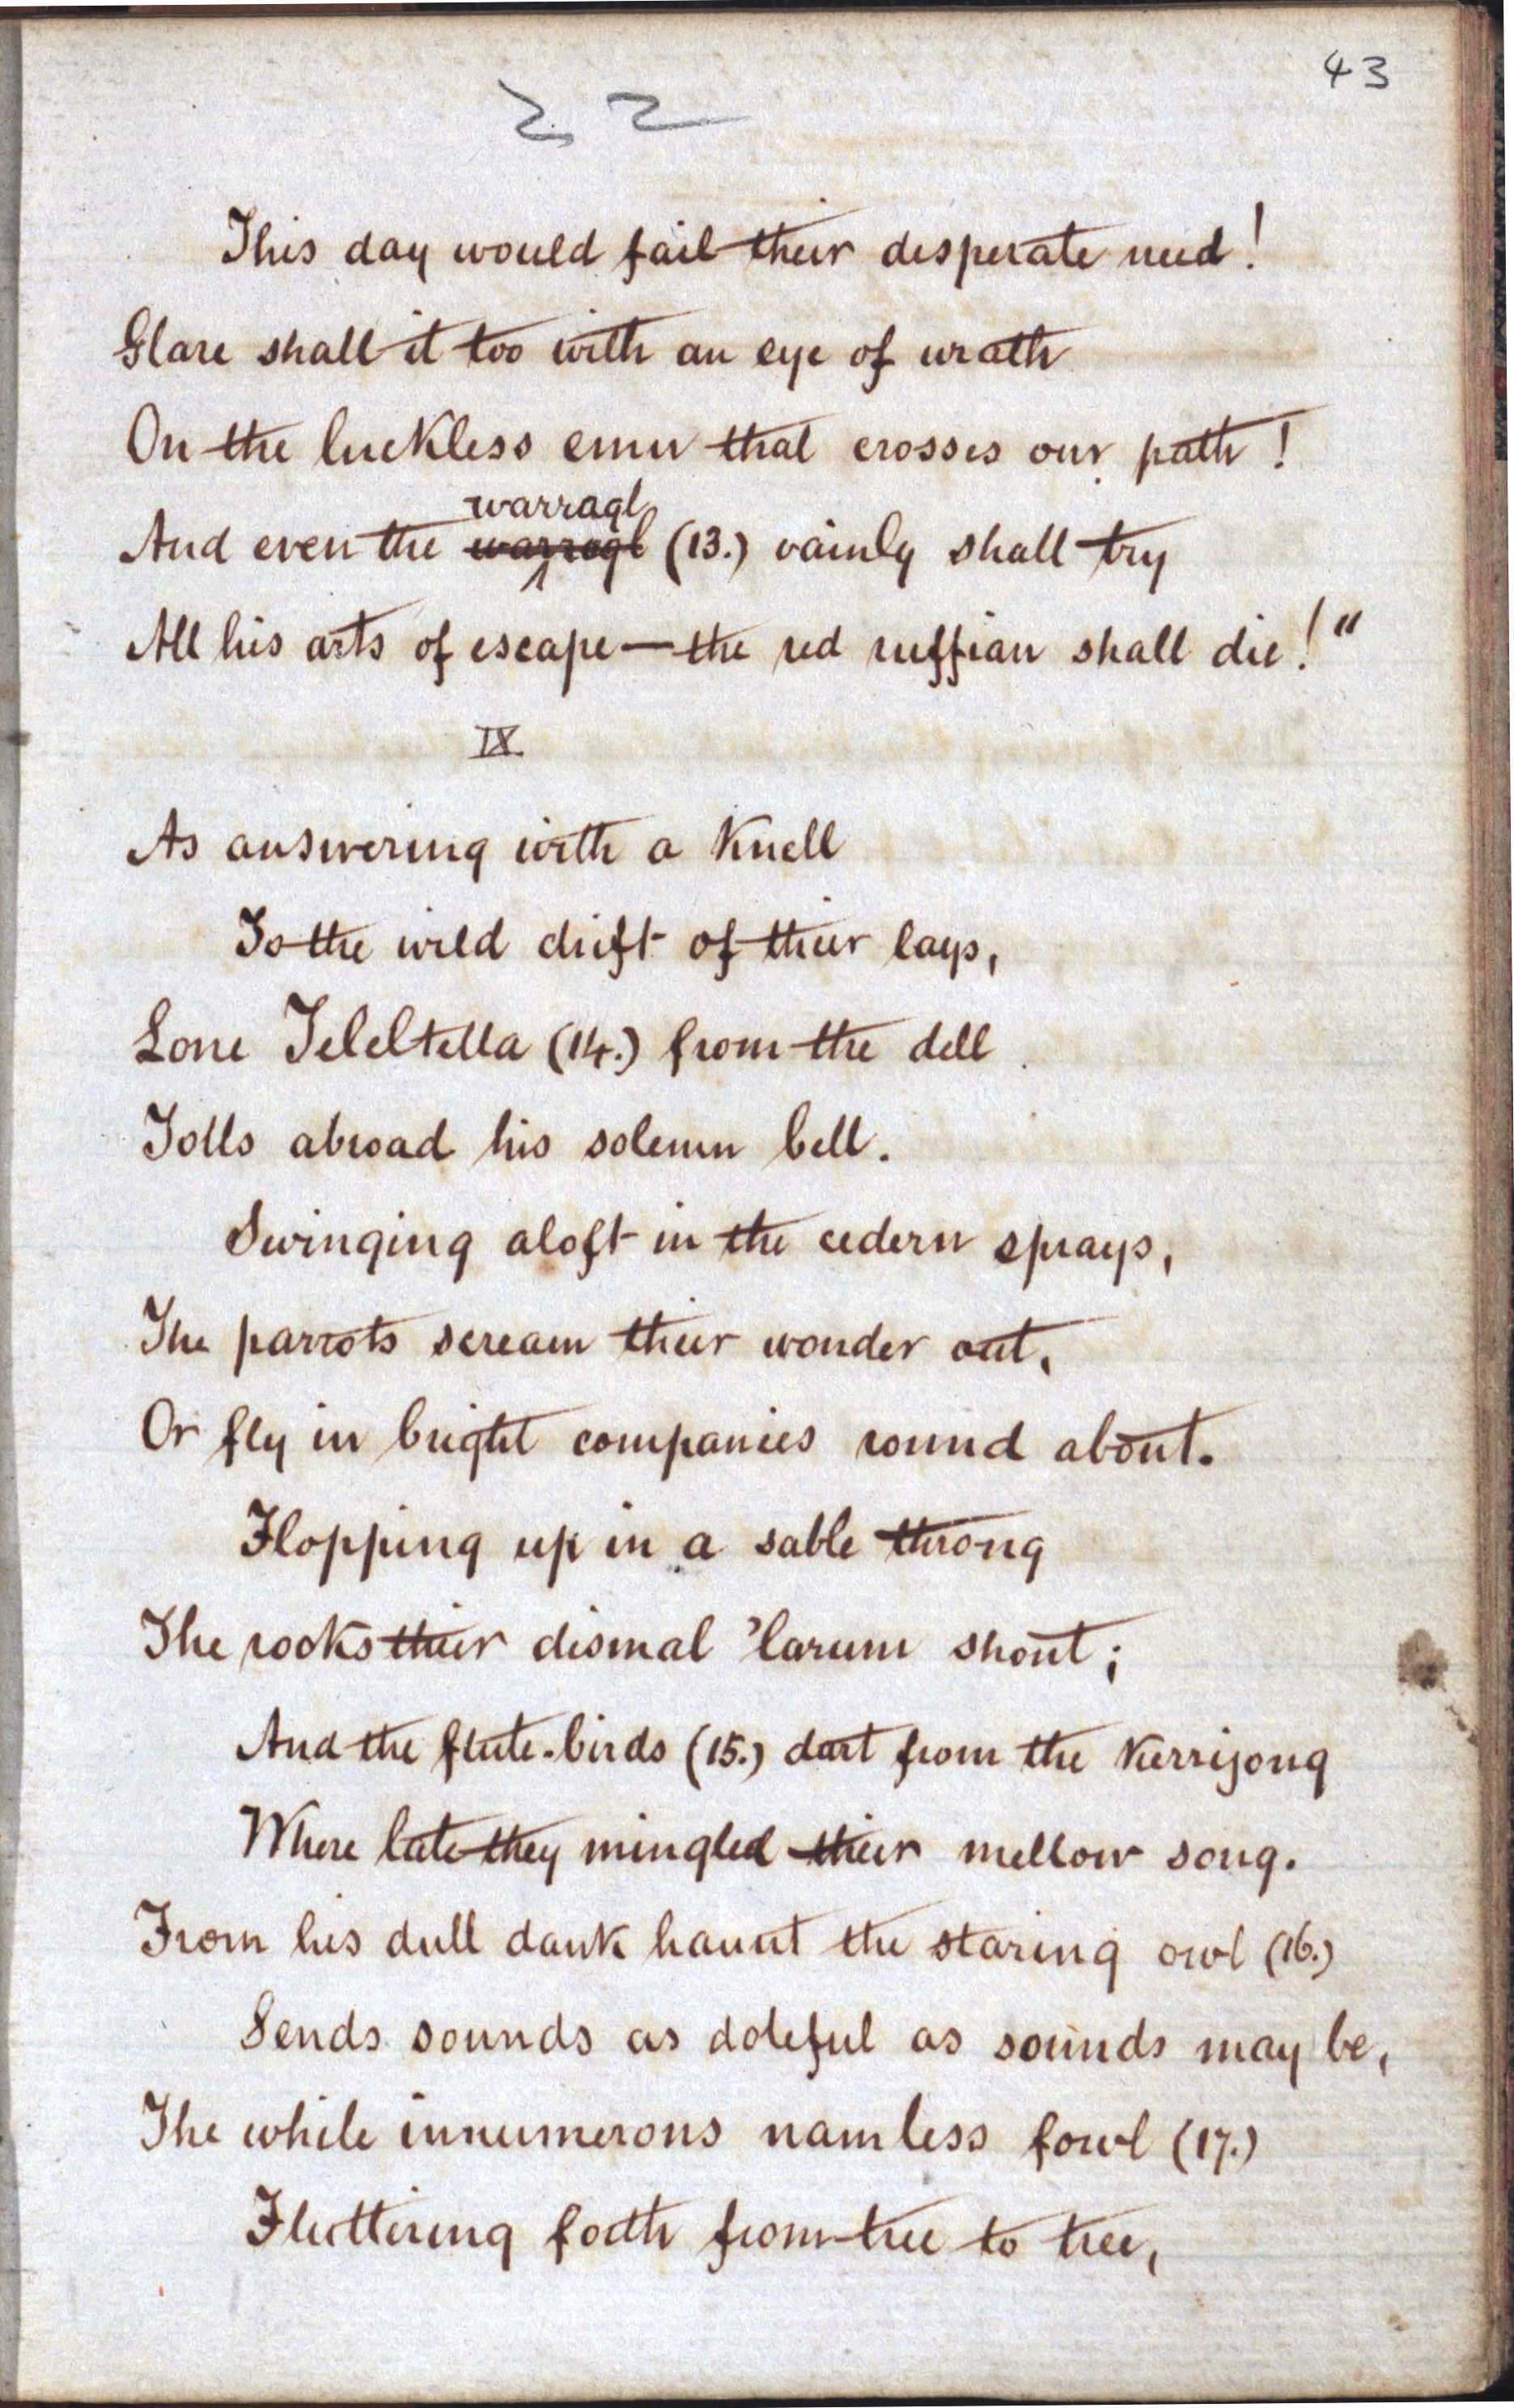 43
22
This day would fail their desperate need!
Glare shall it too with an eye of wrath
On the luckless emu that crosses our path!
warragl
And even the warrogl (13.) vainly shall try
All his arts of escape—the red ruffian shall die!"
IX
As answering with a Knell
To the wild drift of their lays,
Lone Teleltella (14.) from the dell
Tolls abroad his solemn bell.
Swinging aloft in the cedern sprays,
The parrots scream their wonder out,
Or fly in bright companies round about.
Flopping up in a sable throng
The rooks their dismal 'larum shout;
And the flute-birds (15.) dart from the Kurrijong
Where late they mingled their mellow song.
From his dull dank haunt the staring owl (16.)
Sends sounds as doleful as sounds may be,
The while innumerous namless fowl (17.)
Fluttering foth from tree to tree,